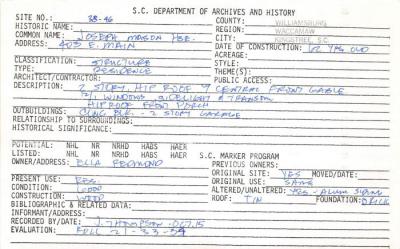 S.C. DEPARTMENT OF ARCHIVES AND HISTORY
SITE NO.: 38-46 COUNTY: WILLIAMSBURG
HISTORIC NAME: REGION: WACCAMAW
COMMON NAME: JOSEPH MASON HSE. CITY: KINGSTREE, S.C.
ADDRESS: 405 E. MAIN DATE OF CONSTRUCTION: YRS OLD
ACREAGE:
CLASSIFICATION: STRUCTURE STYLE:
TYPE: RESIDENCE THEME(S):
ARCHITECT/CONTRACTOR: PUBLIC ACCESS:
DESCRIPTION: 2 STORY, HIP ROOF & CENTRAL FRONT GABLE
2/1 WINDOWS, SIDELIGHT & TRANSOM
HIP ROOF FRONT PORCH
OUTBUILDINGS: CONC BLK. - 2 STORY GARAGE
RELATIONSHIP TO SURROUNDINGS:
HISTORICAL SIGNIFICANCE:
POTENTIAL: NHL NR NRHD HABS HAER
LISTED: NHL NR NRHD HABS HAER S.C. MARKER PROGRAM
OWNER/ADDRESS: ELLA REDMOND PREVIOUS OWNERS:
ORIGINAL SITE: YES MOVED/DATE:
PRESENT USE: RES. ORIGINAL USE: SAME
CONDITION: GOOD ALTERED/UNALTERED: YES - ALUM SIDING
CONSTRUCTION: WOOD ROOF: TIN FOUNDATION: BRICK
BIBLIOGRAPHIC & RELATED DATA:
INFORMANT/ADDRESS:
RECORDED BY/DATE: J. THOMPSON - OCT. 15
EVALUATION: